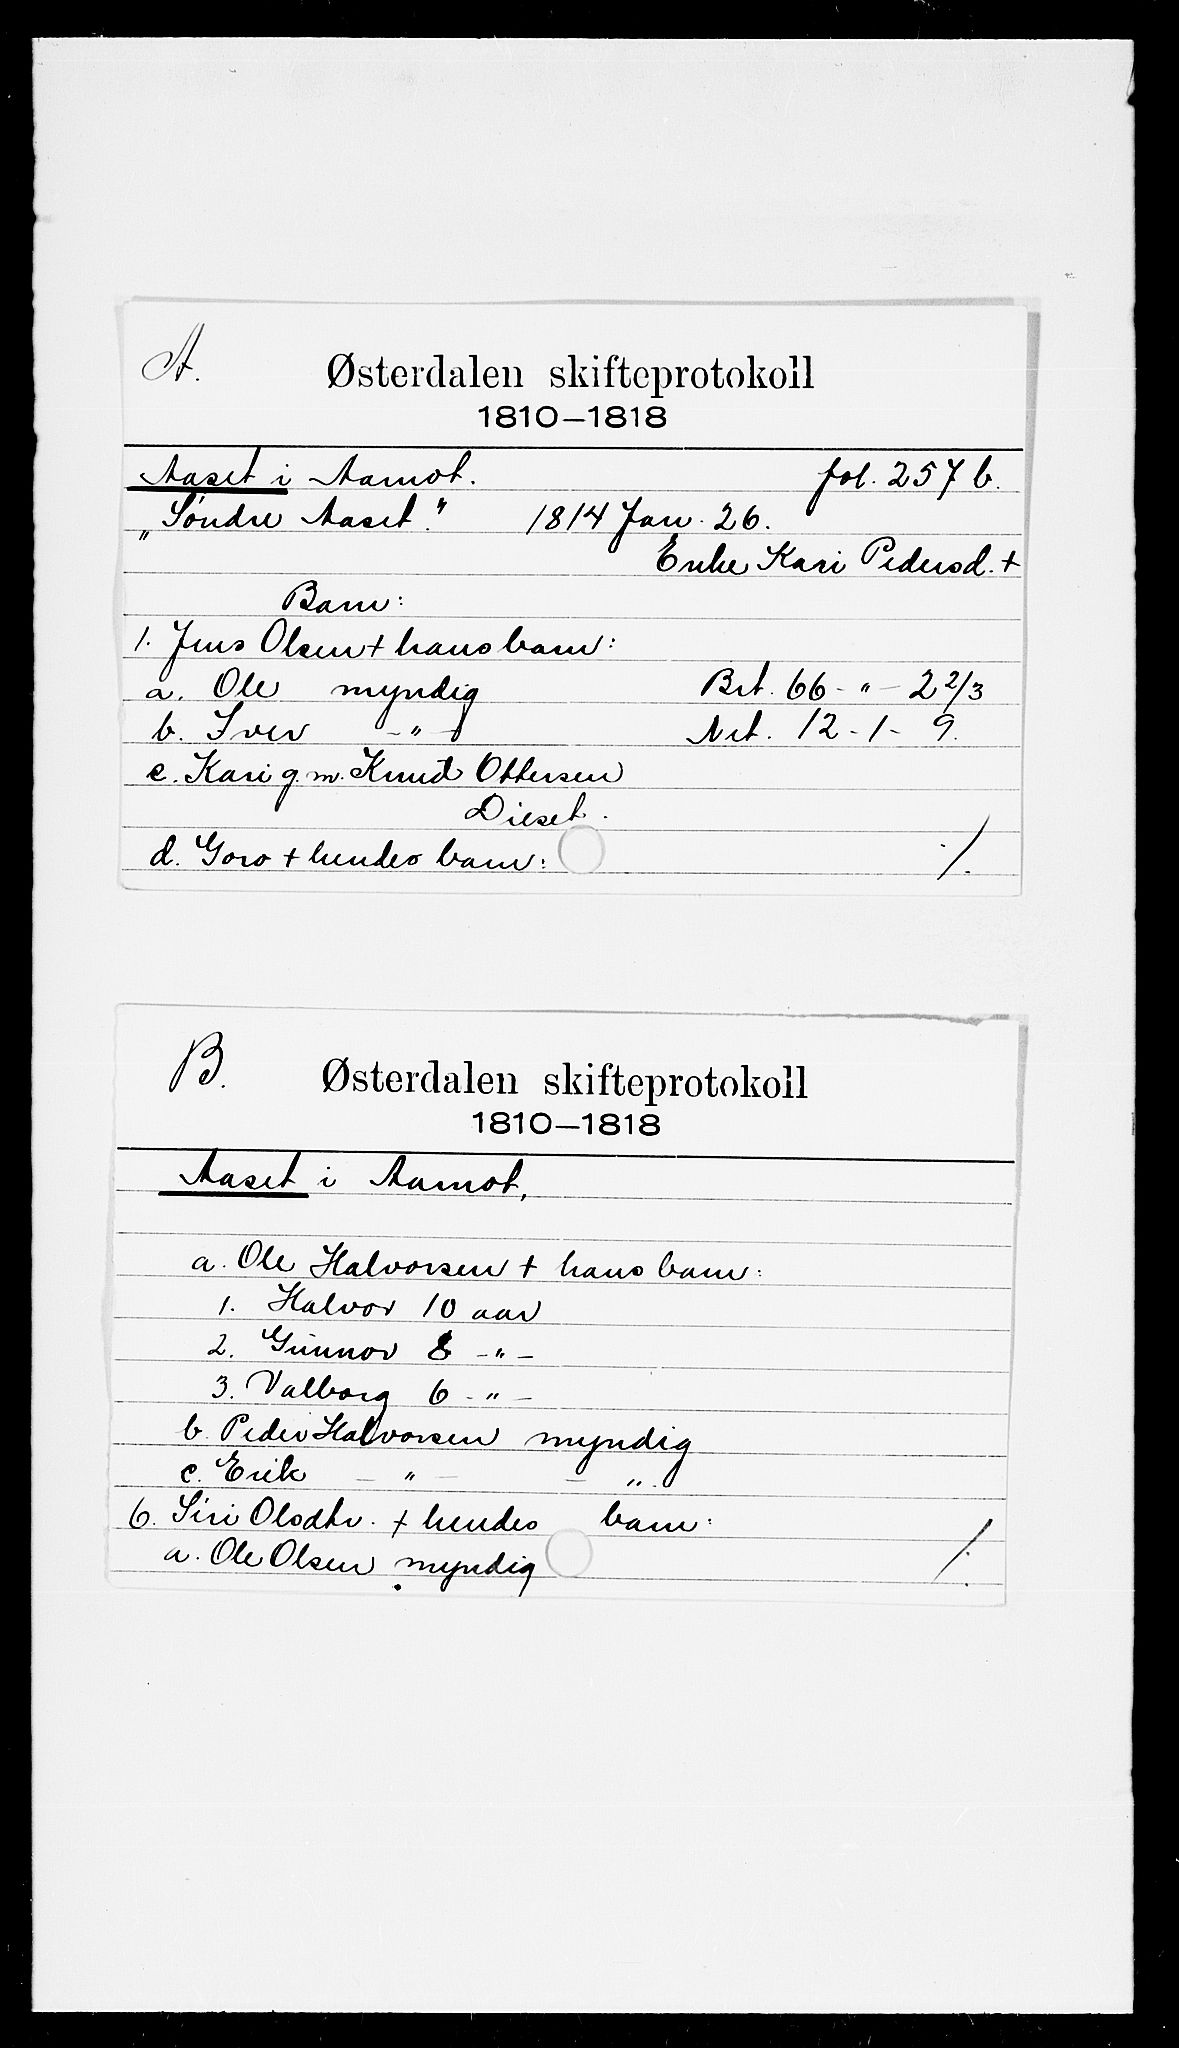 A.
Østerdalen skifteprotokoll
1810—1818
Aaset i Aamot. fol. 257 b.
„Søndre Aaset." 1814 Jan. 26.
Enke Kari Pedersd. +
Barn:
1. Jens Olsen + hans barn:
a. Ole myndig Brt. 66 - " - 2 2/3
b. Iver - " - Nrt. 12 - 1 - 9.
c. Kari g. m. Knud Ottersen
Dieset.
d. Goro + hendes barn: ./.
B.
Østerdalen skifteprotokoll
1810—1818
Aaset i Aamot,
a. Ole Halvorsen + hans barn:
1. Halvor 10 aar
2. Gunnor 8 - " -
3. Valborg 6 - " -
b. Peder Halvorsen myndig
c. Erik - " - - " .
6. Siri Olsdtr. + hendes barn:
a. Ole Olsen myndig ./.